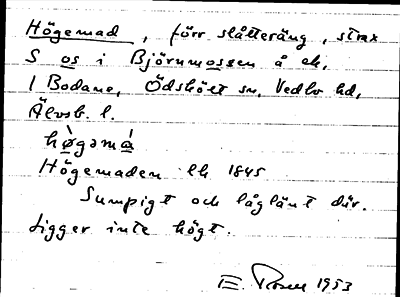 Högemad, förr slåtteräng, strax
S os i Björnmossen å ek.
1 Bodane, Ödskölt sn, Vedbo hd,
Älvsb. l.
hø̀gəmá
Högemaden lk 1845
Sumpigt och låglänt där.
Ligger inte högt.
E. Rosen 1953